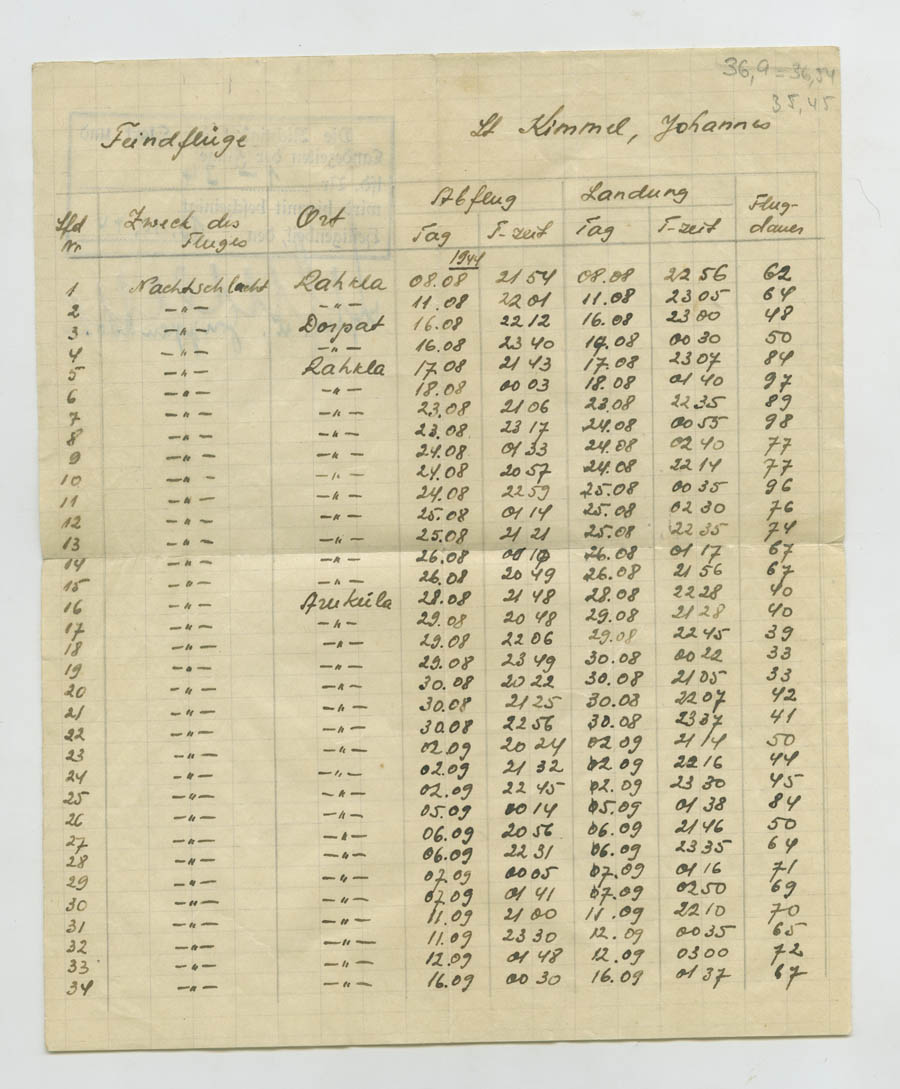 36,9 = 36,54
35,45
Feindflüge
Lt Kimmel, Johannes
Lfd Nr Zweck des Fluges Ort Abflug Landung Flug-dauer
Tag T-zeit Tag T-zeit
1944
1 Nachtschlacht Rahkla 08.08 21 54 08.08 22 56 62
2 -"- -"- 11.08 22 01 11.08 23 05 64
3 -"- Dorpat 16.08 22 12 16.08 23 00 48
4 -"- -"- 16.08 23 40 17.08 00 30 50
5 -"- Rahkla 17.08 21 43 17.08 23 07 84
6 -"- -"- 18.08 00 03 18.08 01 40 97
7 -"- -"- 23.08 21 06 23.08 22 35 89
8 -"- -"- 23.08 23 17 24.08 00 55 98
9 -"- -"- 24.08 01 33 24.08 02 40 77
10 -"- -"- 24.08 20 57 24.08 22 14 77
11 -"- -"- 24.08 22 59 25.08 00 35 96
12 -"- -"- 25.08 01 14 25.08 02 30 76
13 -"- -"- 25.08 21 21 25.08 22 35 74
14 -"- -"- 26.08 00 10 26.08 01 17 67
15 -"- -"- 26.08 20 49 26.08 21 56 67
16 -"- Arukula 28.08 21 48 28.08 22 28 40
17 -"- -"- 29.08 20 48 29.08 21 28 40
18 -"- -"- 29.08 22 06 29.08 22 45 39
19 -"- -"- 29.08 23 49 30.08 00 22 33
20 -"- -"- 30.08 20 22 30.08 21 05 33
21 -"- -"- 30.08 21 25 30.08 22 07 42
22 -"- -"- 30.08 22 56 30.08 23 37 41
23 -"- -"- 02.09 20 24 02.09 21 14 50
24 -"- -"- 02.09 21 32 02.09 22 16 44
25 -"- -"- 02.09 22 45 02.09 23 30 45
26 -"- -"- 05.09 00 14 05.09 01 38 84
27 -"- -"- 06.09 20 56 06.09 21 46 50
28 -"- -"- 06.09 22 31 06.09 23 35 64
29 -"- -"- 07.09 00 05 07.09 01 16 71
30 -"- -"- 07.09 01 41 07.09 02 50 69
31 -"- -"- 11.09 21 00 11.09 22 10 70
32 -"- -"- 11.09 23 30 12.09 00 35 65
33 -"- -"- 12.09 01 48 12.09 03 00 72
34 -"- -"- 16.09 00 30 16.09 01 37 67